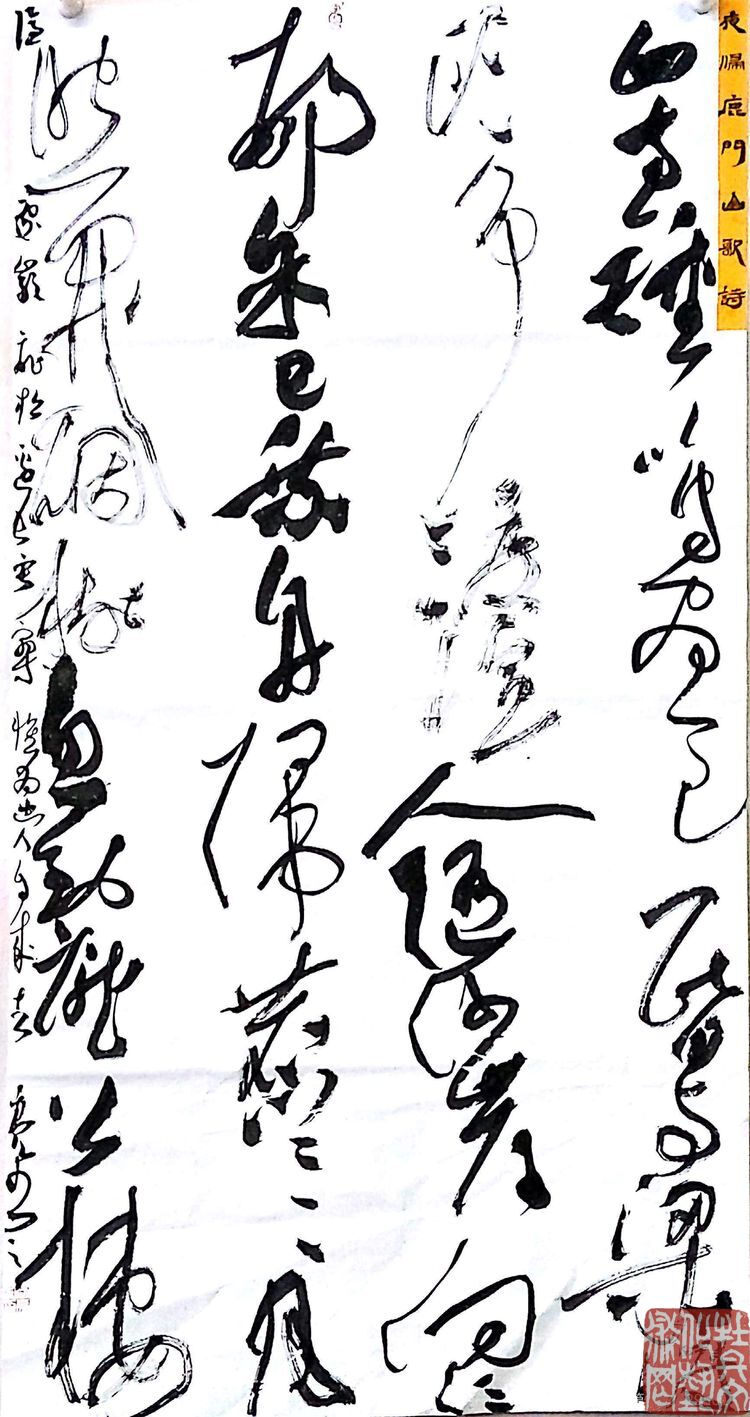 夜歸鹿門山歌詩
山寺鐘鳴晝已昏漁梁渡
頭爭渡喧人隨沙岸向江
邨余亦乘舟歸鹿門〻〻月
照開烟樹忽到龐公棲
隱處巖扉松徑長寂寥惟有幽人自來去